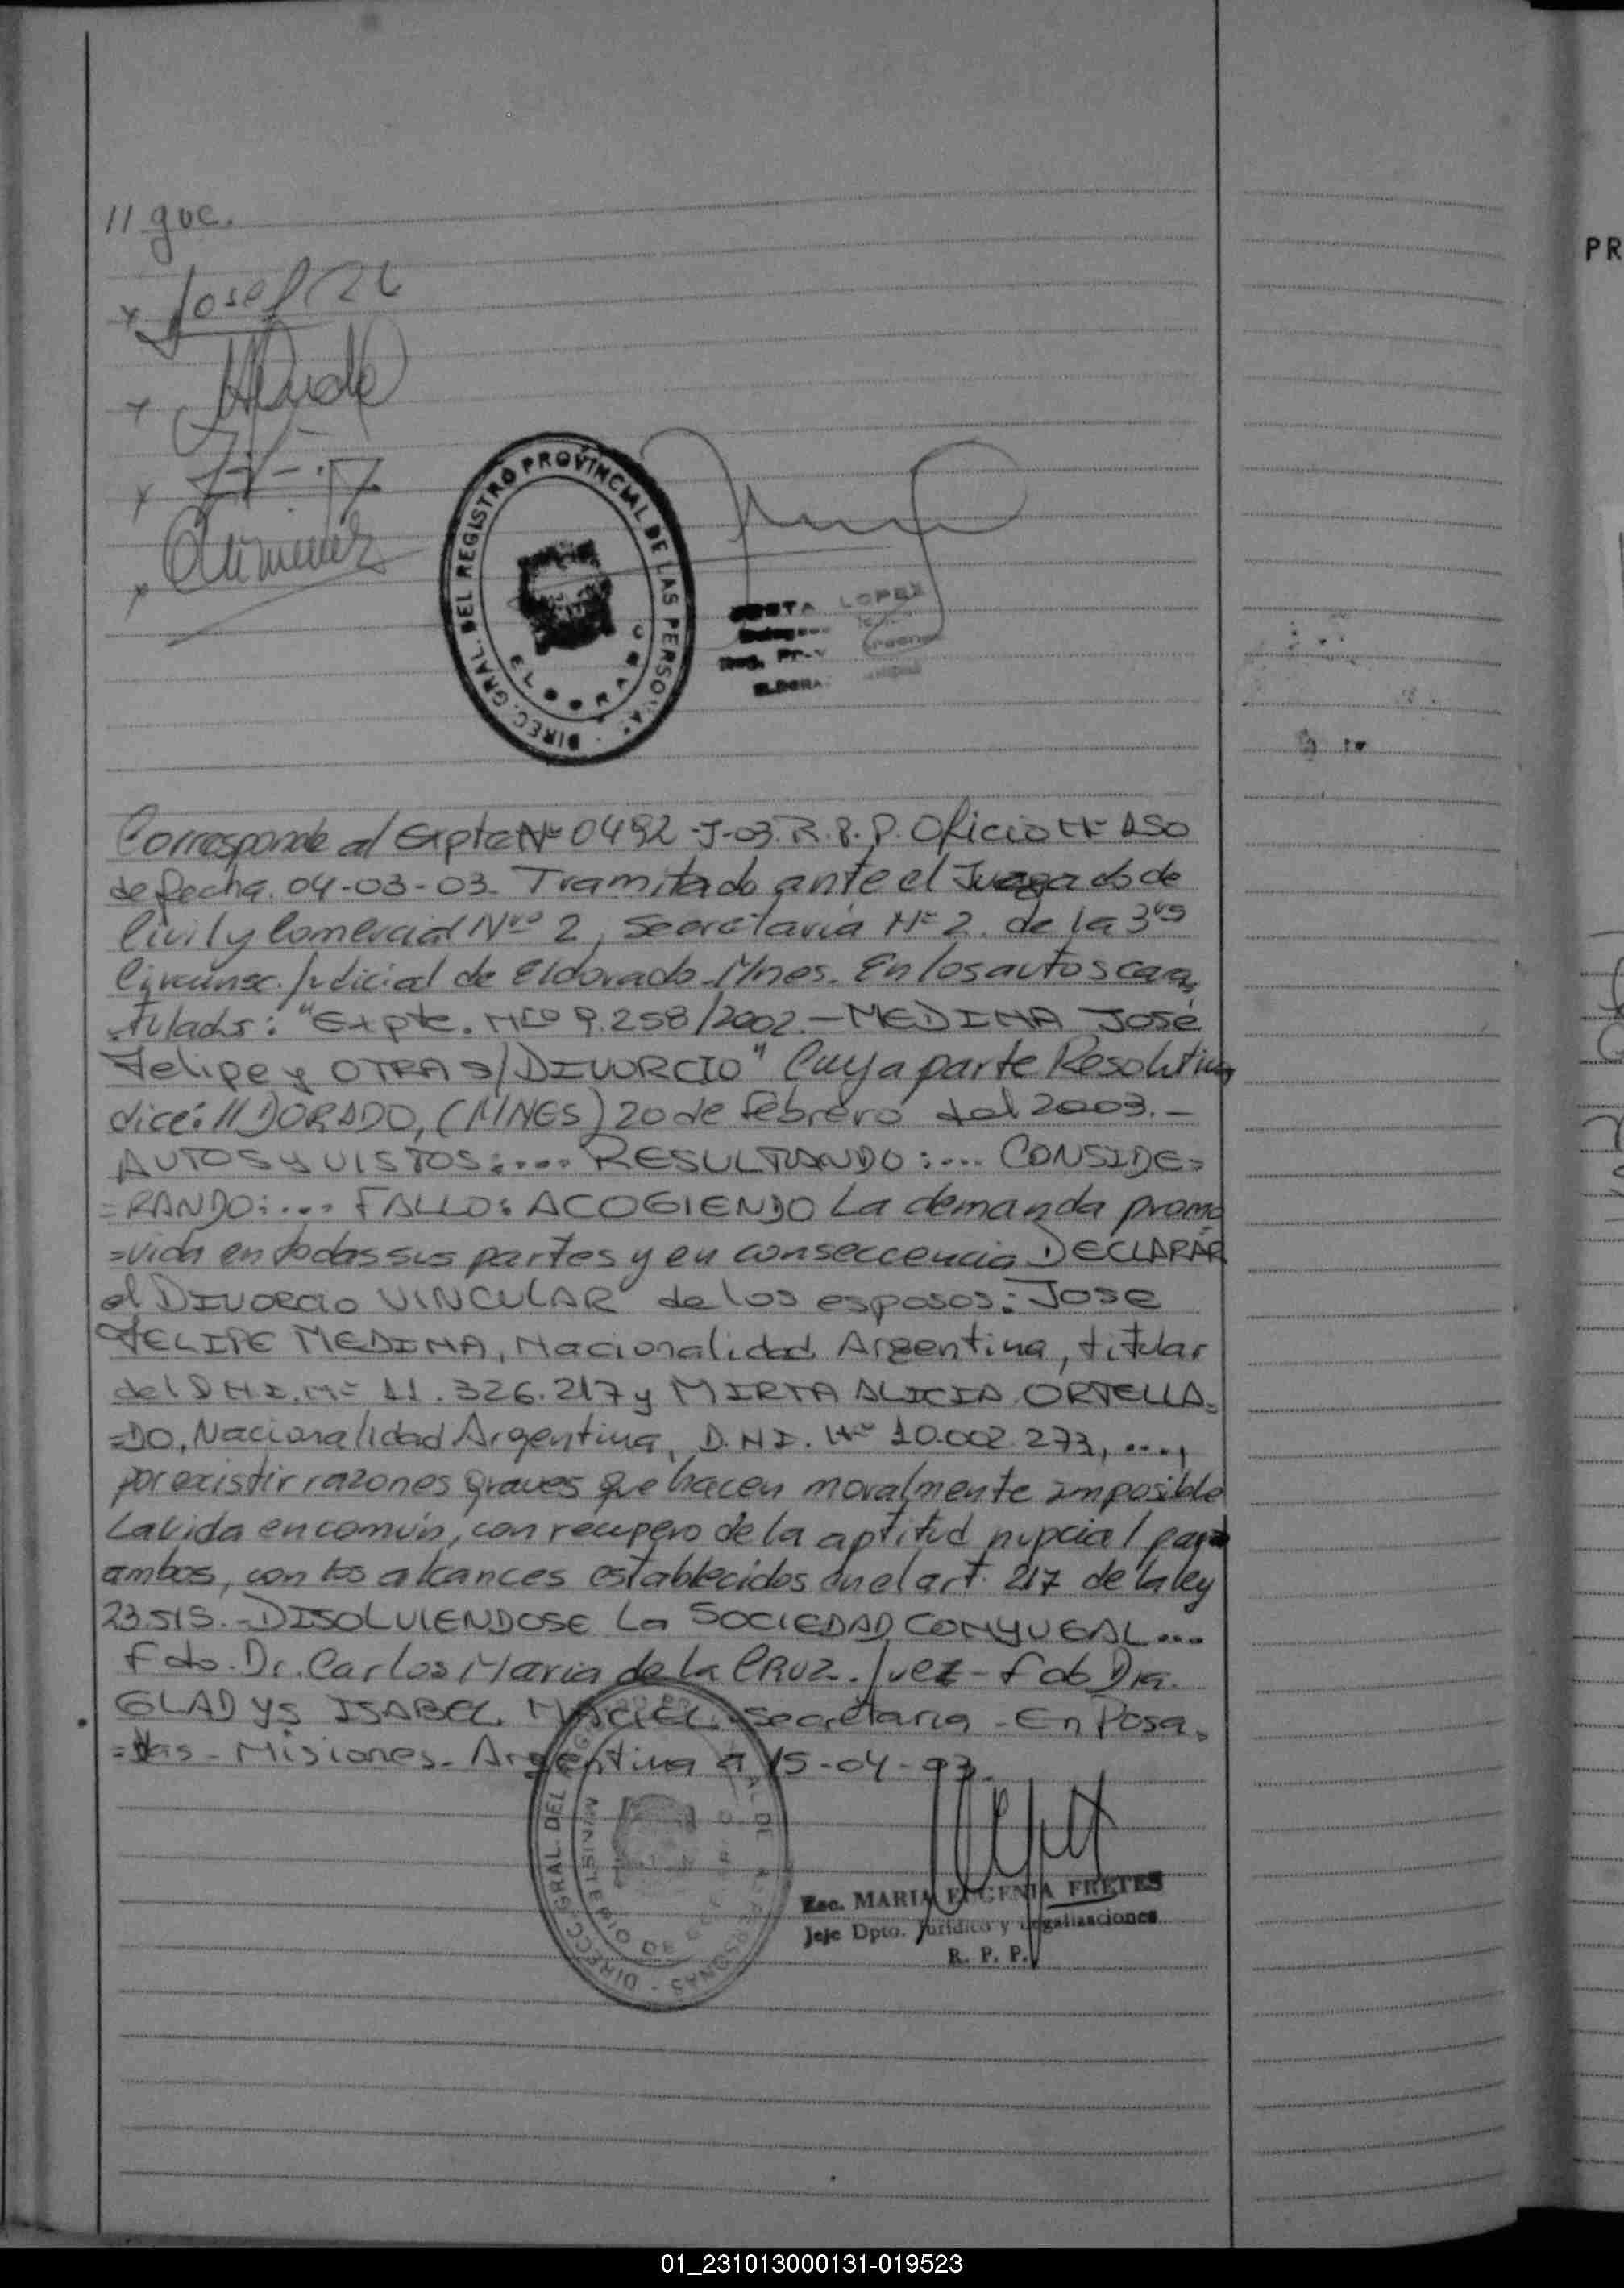 // que.
DIREC. GRAL. DEL REGISTRO PROVINCIAL DE LAS PERSONAS
ELDORADO
LOPEZ
Corresponde al Expte Nº 0492-J-03. R.P.P. Oficio Nº 150
de fecha. 04-03-03. Tramitado ante el Juzgado de
Civil y Comercial Nro 2, Secretaria Nº 2. de la 3ra
Circunsc. Judicial de Eldorado-Mnes. En los autos cara,
tulads: "Expte. Nro 9.258/2002.- MEDINA José
Felipe y OTRA S/DIVORCIO" Cuya parte Resolutiva
dice: //DORADO, (MNES) 20 de febrero del 2003.-
AUTOS y VISTOS:... RESULTANDO:... CONSIDE=
=RANDO:... FALLO: ACOGIENDO La demanda promo
=vida en todas sus partes y en conseccencia DECLARAR
el DIVORCIO VINCULAR de los esposos: JOSE
FELIPE MEDINA, Nacionalidad Argentina, titular
del D.N.I. Nº 11.326.217 y MIRTA ALICIA ORTELLA=
=DO, Nacionalidad Argentina, D.N.I. Nº 10.002.273, ...,
por existir razones graves que hacen moralmente imposible
La vida en común, con recupero de la aptitud nupcial para
ambos, con los alcances establecidos en el art. 217 de la ley
23.515.- DISOLVIENDOSE La SOCIEDAD CONYUGAL...
Fdo. Dr. Carlos Maria de la CRUZ. Juez - Fdo Dra.
GLADYS ISABEL MACIEL. Secretaria - En Posa=
=das - Misiones - Argentina a 15-04-03.
Esc. MARIA EUGENIA FRETES
Jefe Dpto. Jurídico y Legalizaciones
R. P. P.
01_231013000131-019523